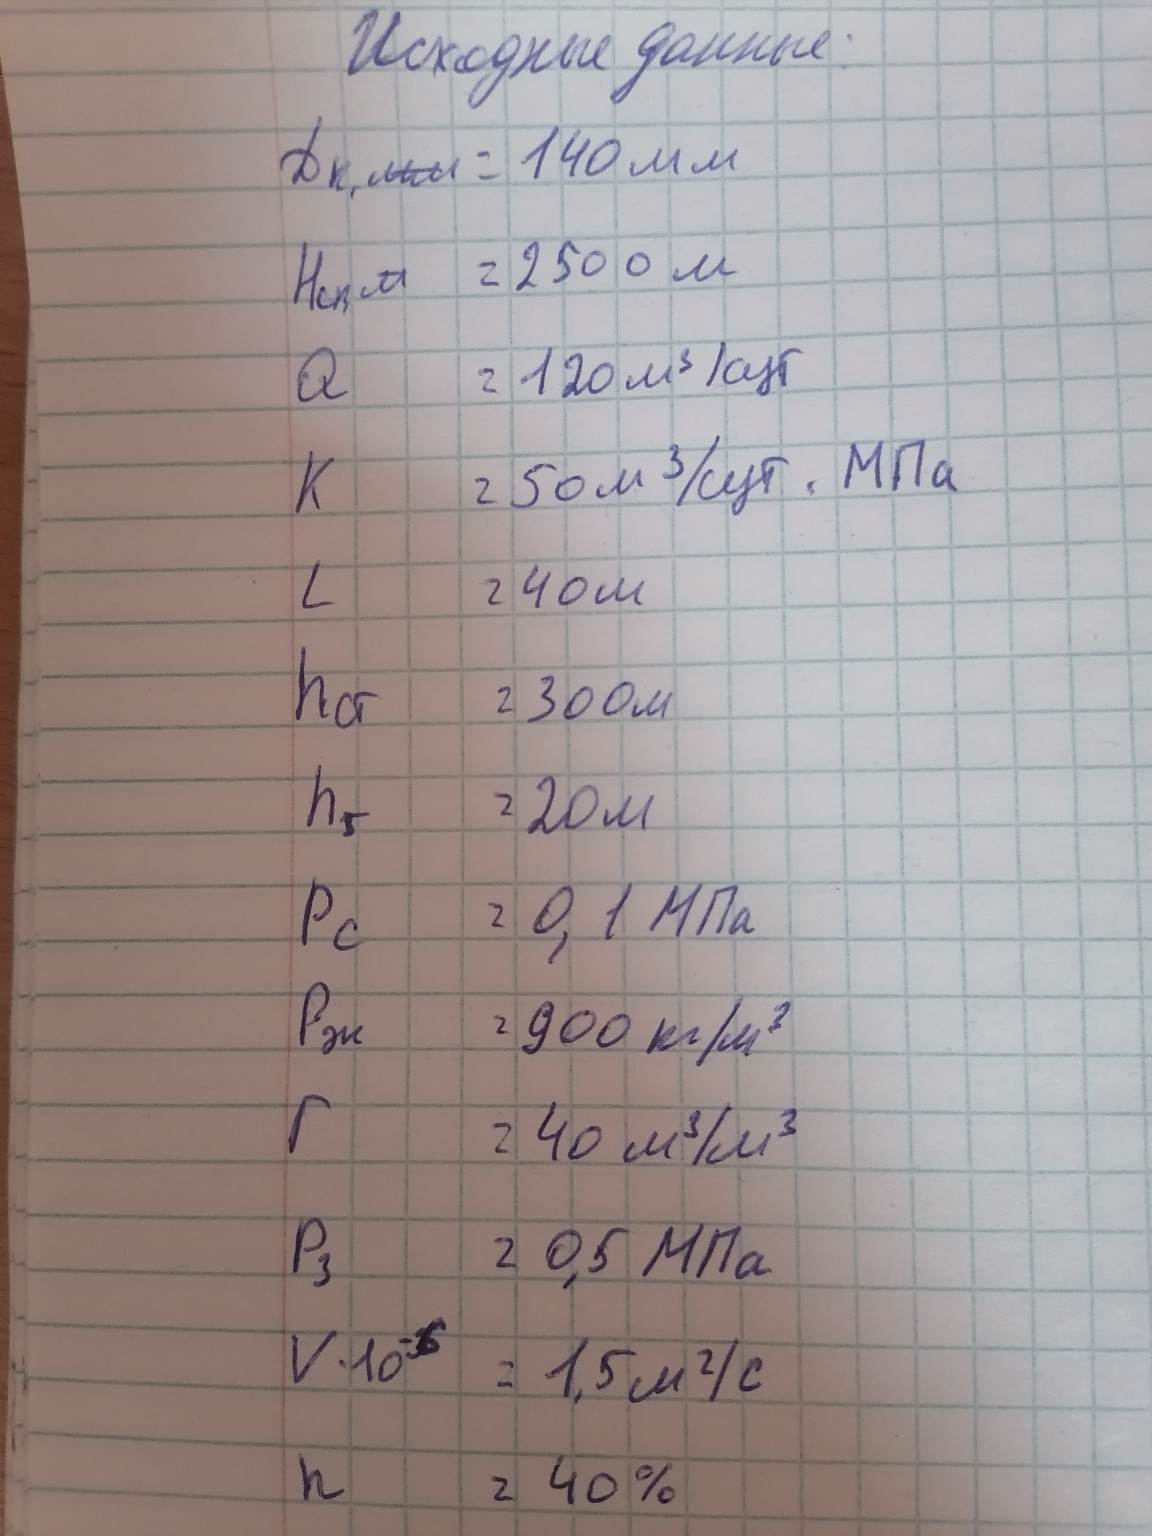 Исходные данные:
Dк, = 140 мм
Hсп, м = 2500 м
Q = 120 м³/сут
K = 50 м³/сут. МПа
L = 40 м
hст = 300 м
h = 20 м
Pс = 0,1 МПа
Pж = 900 кг/м³
Г = 40 м³/м³
P₃ = 0,5 МПа
V·10⁻⁶ = 1,5 м²/с
n = 40%